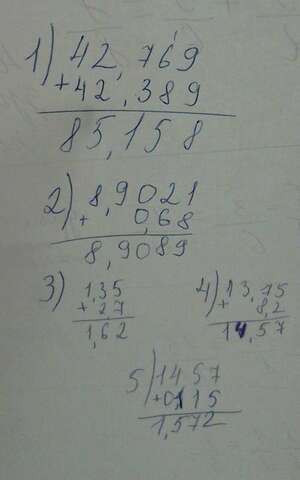 1) 42,769
+42,389
85,158
2) 8,9021
+ 0,68
8,9089
3) 1,35
+ 2,7
1,62
4) 13,75
+ 8,2
14,57
5) 1457
+0,115
1,572